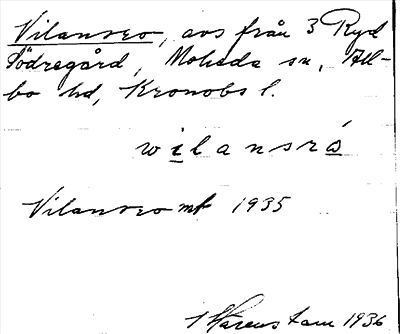 Vilansro, avs från 3 Ryd
Södregård, Moheda sn, All-
bo hd, Kronobs l.
wilansró
Vilansro mb 1935
Harens tam 1936